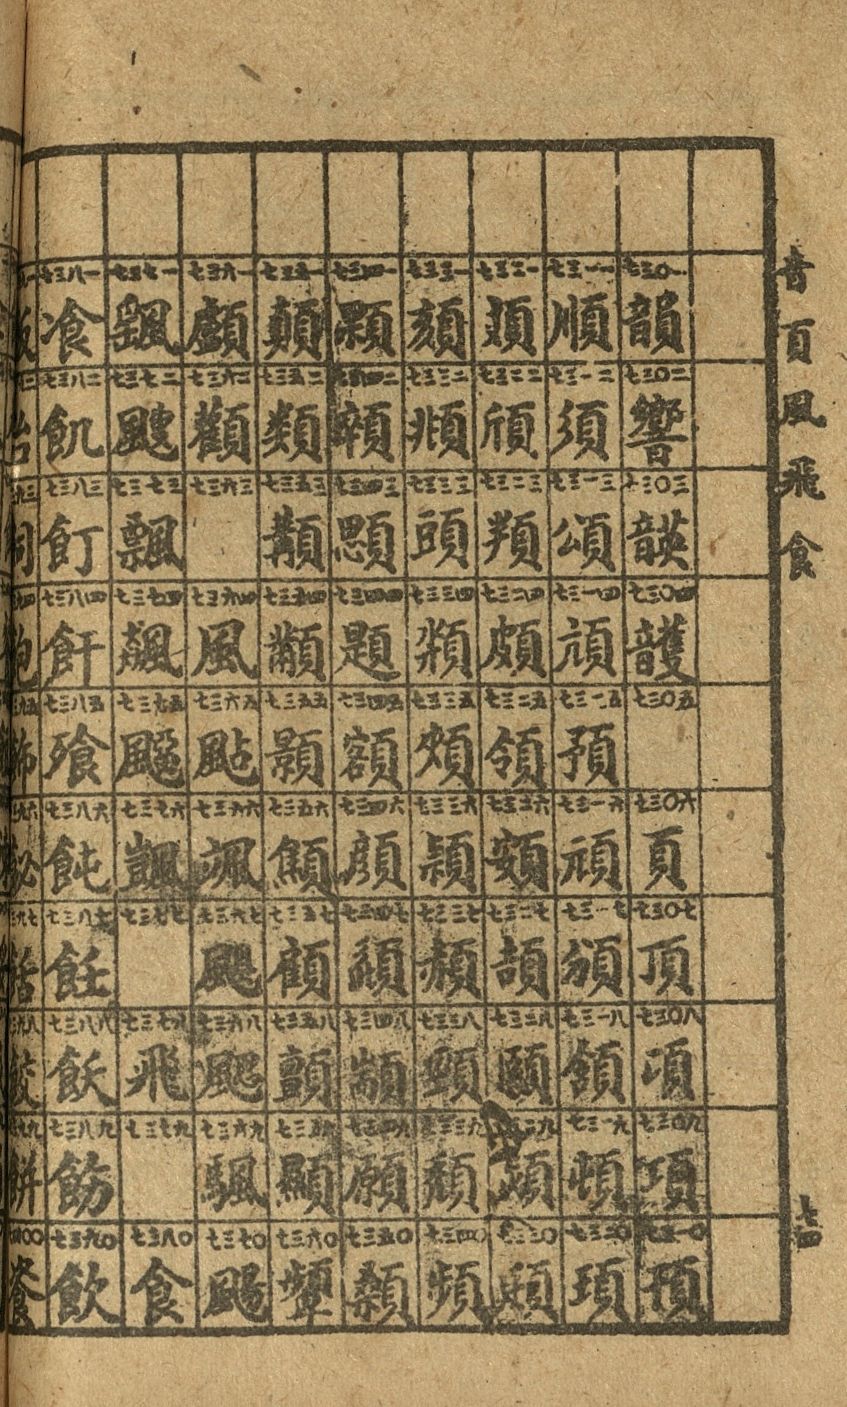 音頁風飛食
七四
七三〇一 韻 七三〇二 響 七三〇三 韺 七三〇四 頀 七三〇五 七三〇六 頁 七三〇七 頂 七三〇八 頃 七三〇九 項 七三一〇 頇
七三一一 順 七三一二 須 七三一三 頌 七三一四 頏 七三一五 預 七三一六 頑 七三一七 頒 七三一八 頷 七三一九 頓 七三二〇 頊
七三二一 七三二二 頎 七三二三 頖 七三二四 頗 七三二五 領 七三二六 頞 七三二七 頡 七三二八 頤 七三二九 七三三〇
七三三一 頦 七三三二 頫 七三三三 頭 七三三四 七三三五 頰 七三三六 穎 七三三七 頳 七三三八 頸 七三三九 頹 七三四〇 頻
七三四一 顆 七三四二 顇 七三四三 顋 七三四四 題 七三四五 額 七三四六 顏 七三四七 七三四八 顓 七三四九 願 七三五〇 顙
七三五一 顛 七三五二 類 七三五三 七三五四 七三五五 顥 七三五六 七三五七 顧 七三五八 顫 七三五九 顯 七三六〇 顰
七三六一 顱 七三六二 顴 七三六三 七三六四 風 七三六五 颭 七三六六 颯 七三六七 颶 七三六八 颸 七三六九 颿 七三七〇 颺
七三七一 颻 七三七二 颼 七三七三 飄 七三七四 飆 七三七五 七三七六 七三七七 七三七八 飛 七三七九 七三八〇 食
七三八一 飡 七三八二 飢 七三八三 飣 七三八四 飦 七三八五 飱 七三八六 飩 七三八七 飪 七三八八 飫 七三八九 飭 七三九〇 飲